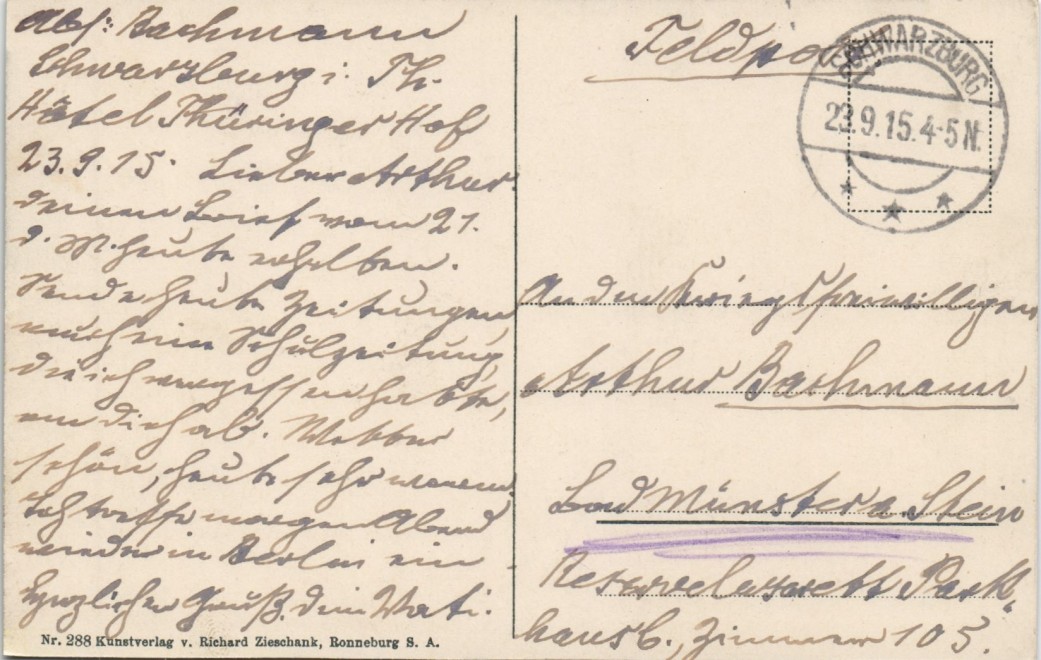 Abs: Bachmann
Schwarzburg i. Th.
Hôtel Thüringer Hof
23.9.15. Lieber Arthur.
deinen Brief vom 21.
d. M. heute erhalten.
Sende heute Zeitungen,
auch eine Schulzeitung,
die ich vergessen hatte,
an dich ab. Wetter
schön, heute sehr warm.
Ich treffe morgen Abend
wieder in Berlin ein
Herzlichen Gruß. dein Vati.
Nr. 288 Kunstverlag v. Richard Zieschank, Ronneburg S. A.
Feldpost
SCHWARZBURG
23.9.15.4-5N.
An den Kriegsfreiwilligen
Arthur Bachmann
Bad Münster a. Stein
Reservelazarett Park-
haus 6., Zimmer 105.